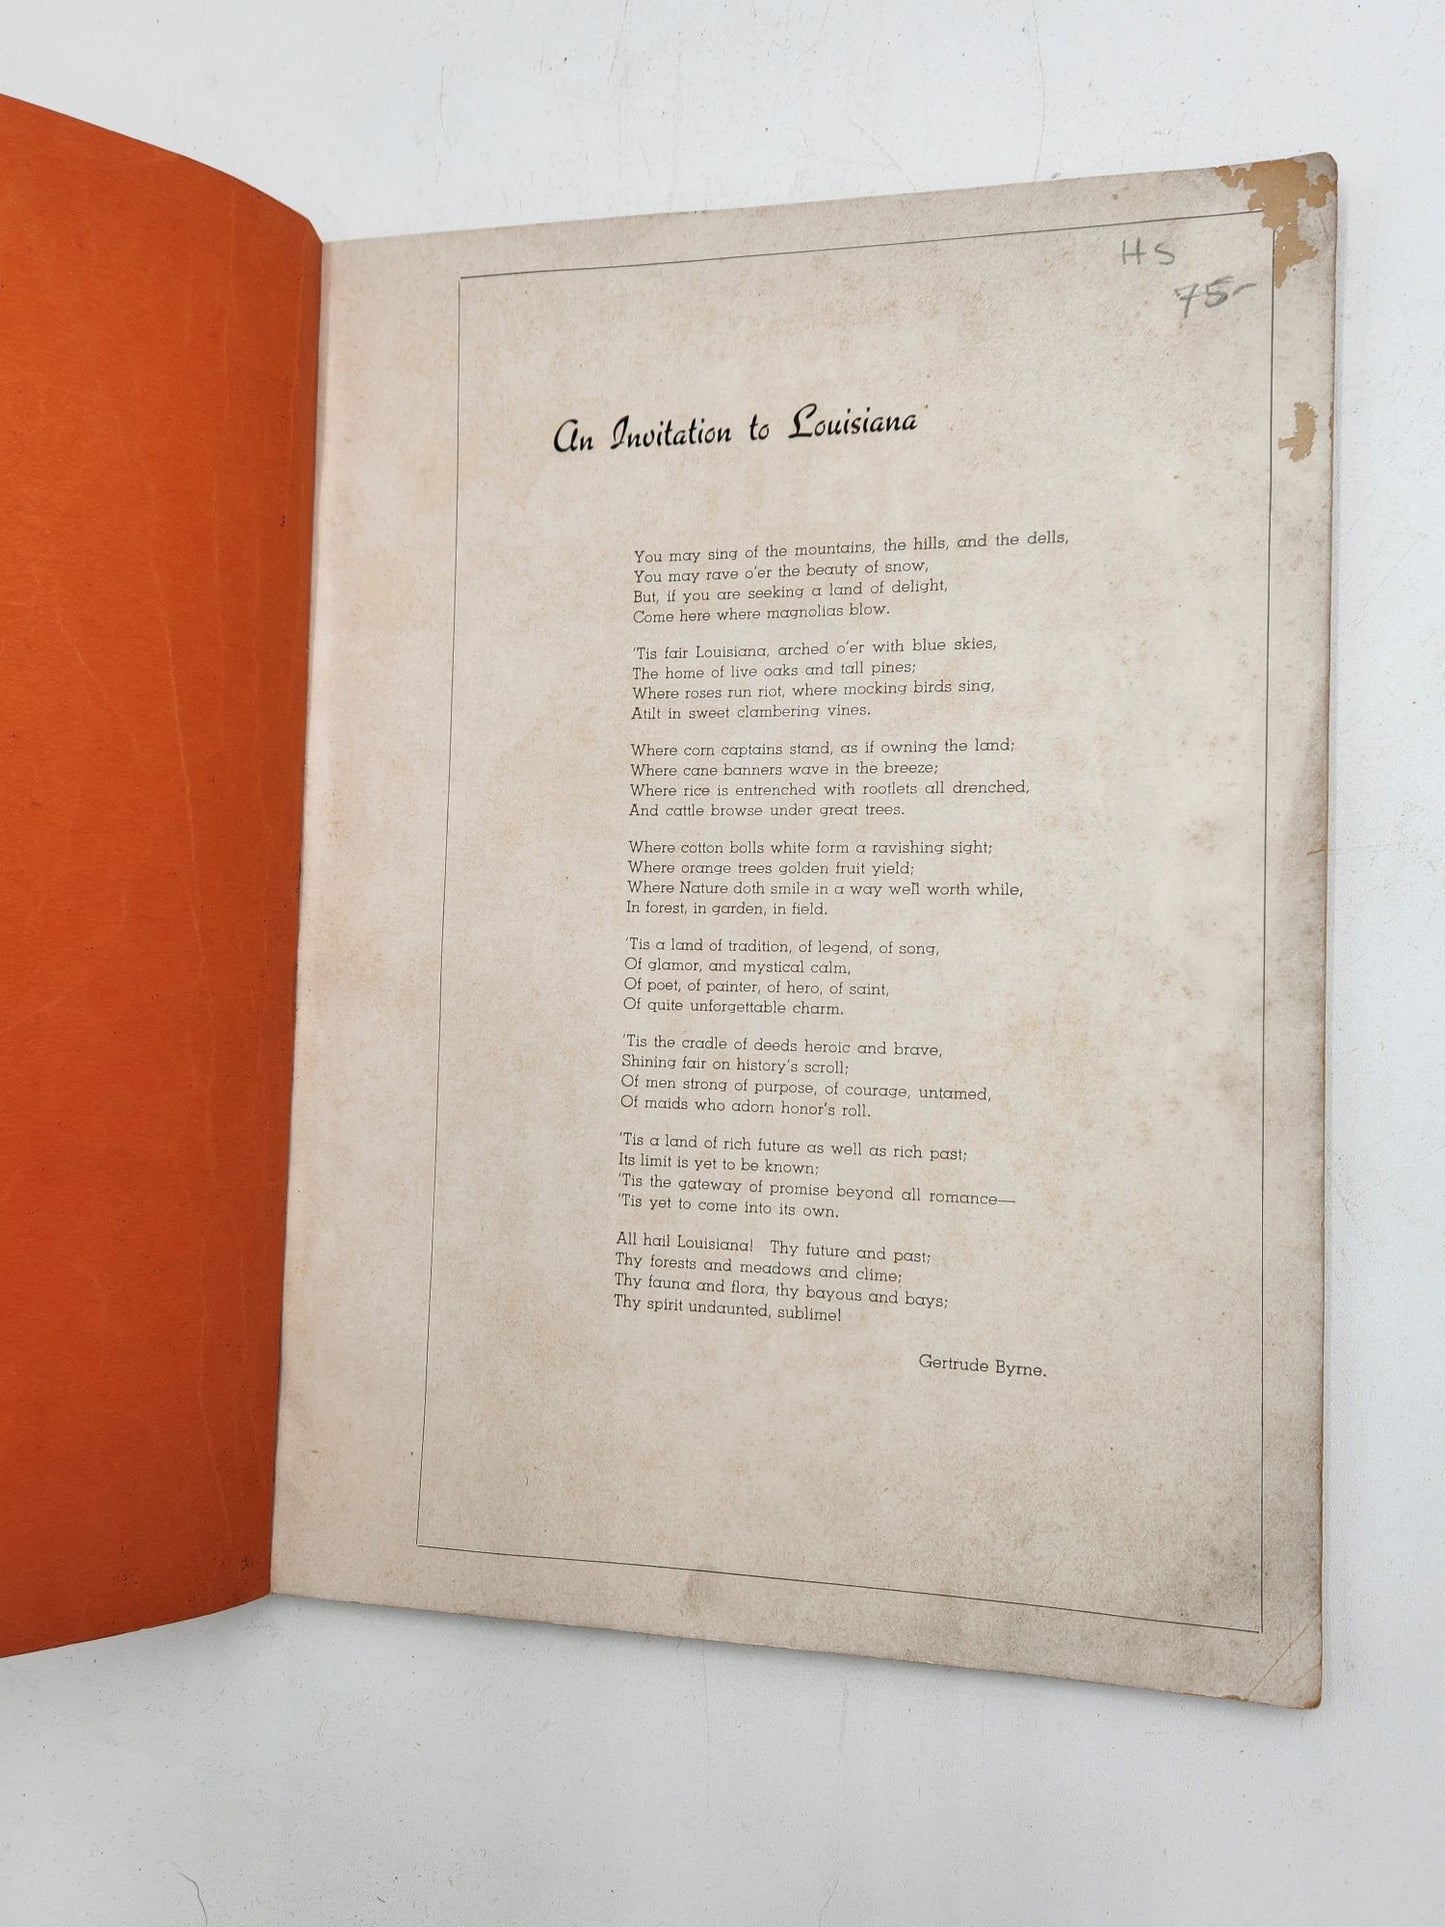 HS
75-
An Invitation to Louisiana
You may sing of the mountains, the hills, and the dells,
You may rave o'er the beauty of snow,
But, if you are seeking a land of delight,
Come here where magnolias blow.
'Tis fair Louisiana, arched o'er with blue skies,
The home of live oaks and tall pines;
Where roses run riot, where mocking birds sing,
Atilt in sweet clambering vines.
Where corn captains stand, as if owning the land;
Where cane banners wave in the breeze;
Where rice is entrenched with rootlets all drenched,
And cattle browse under great trees.
Where cotton bolls white form a ravishing sight;
Where orange trees golden fruit yield;
Where Nature doth smile in a way well worth while,
In forest, in garden, in field.
'Tis a land of tradition, of legend, of song,
Of glamor, and mystical calm,
Of poet, of painter, of hero, of saint,
Of quite unforgettable charm.
'Tis the cradle of deeds heroic and brave,
Shining fair on history's scroll;
Of men strong of purpose, of courage, untamed,
Of maids who adorn honor's roll.
'Tis a land of rich future as well as rich past;
Its limit is yet to be known;
'Tis the gateway of promise beyond all romance—
'Tis yet to come into its own.
All hail Louisiana! Thy future and past;
Thy forests and meadows and clime;
Thy fauna and flora, thy bayous and bays;
Thy spirit undaunted, sublime!
Gertrude Byrne.